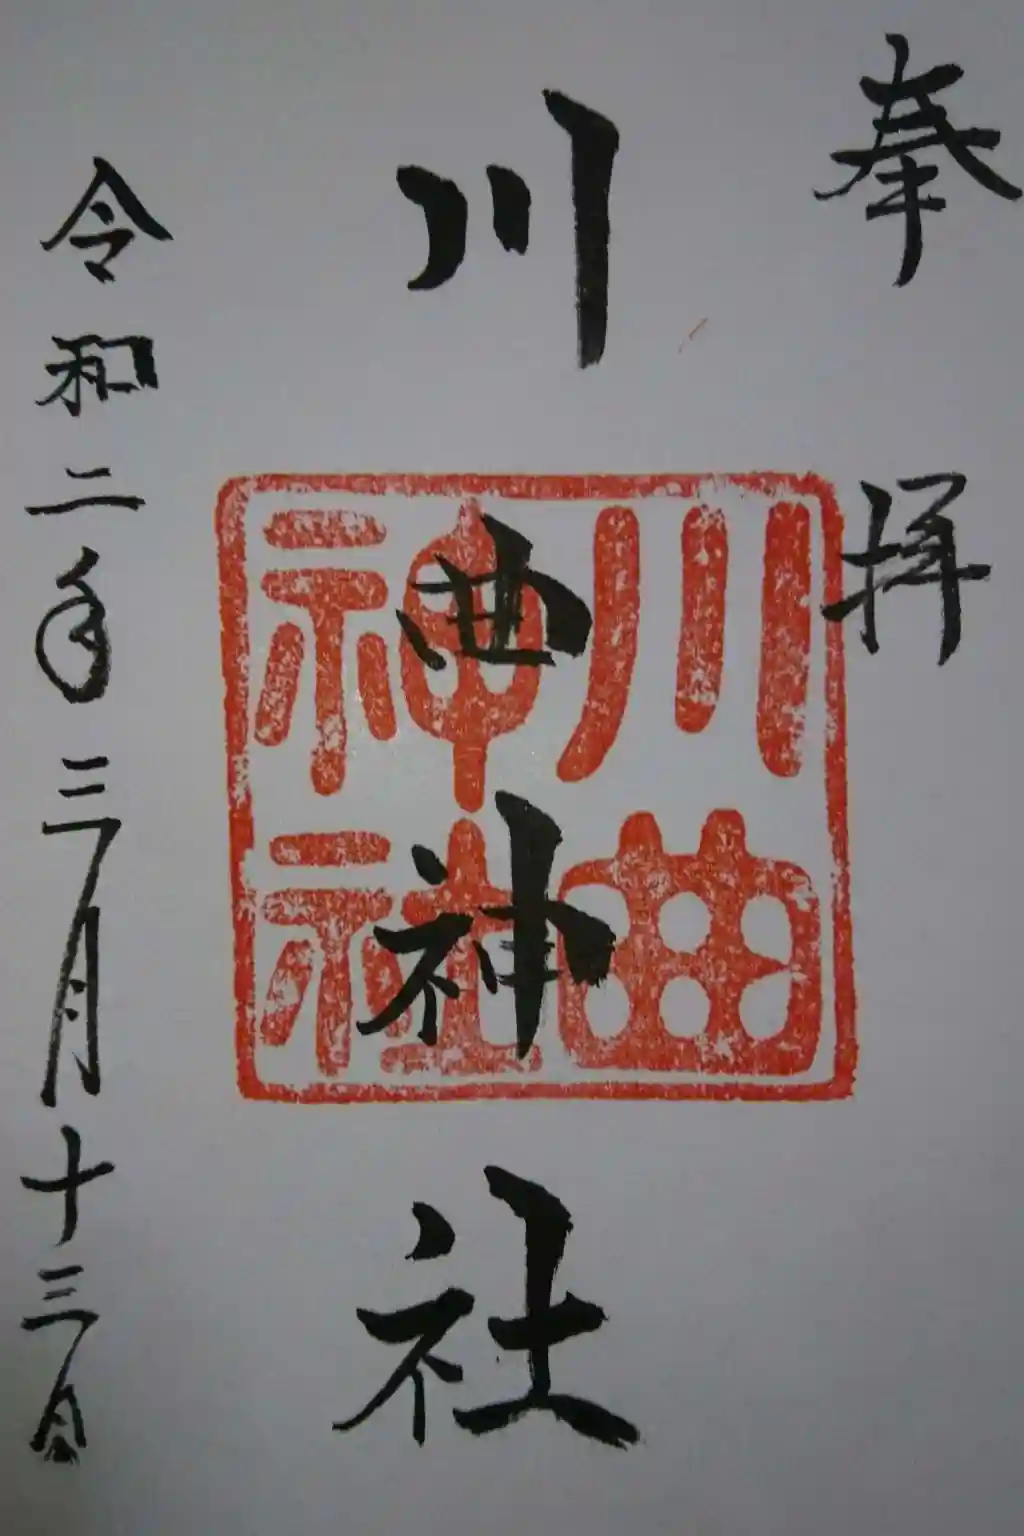 奉拝
川曲神社
川曲
神社
令和二年三月十三日